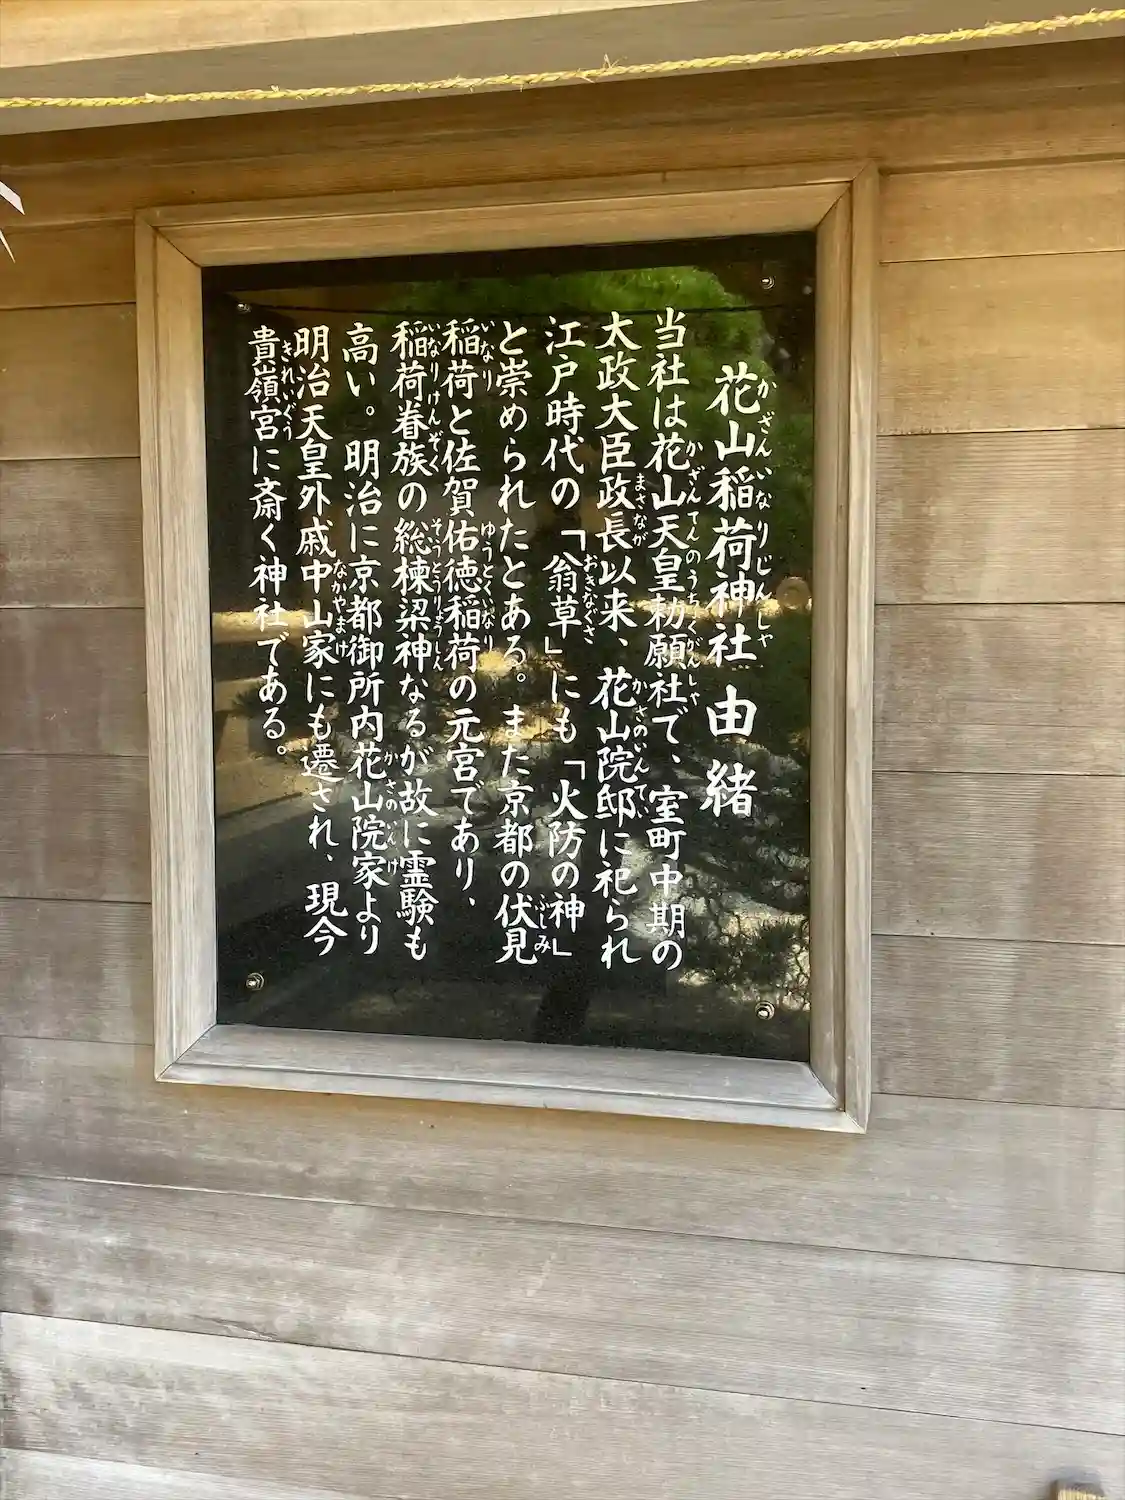 花山稲荷神社 由緒
当社は花山天皇勅願社で、室町中期の
太政大臣政長以来、花山院邸に祀られ
江戸時代の「翁草」にも「火防の神」
と崇められたとある。また京都の伏見
稲荷と佐賀佑徳稲荷の元宮であり、
稲荷眷族の総棟梁神なるが故に霊験も
高い。明治に京都御所内花山院家より
明治天皇外戚中山家にも遷され、現今
貴嶺宮に斎く神社である。